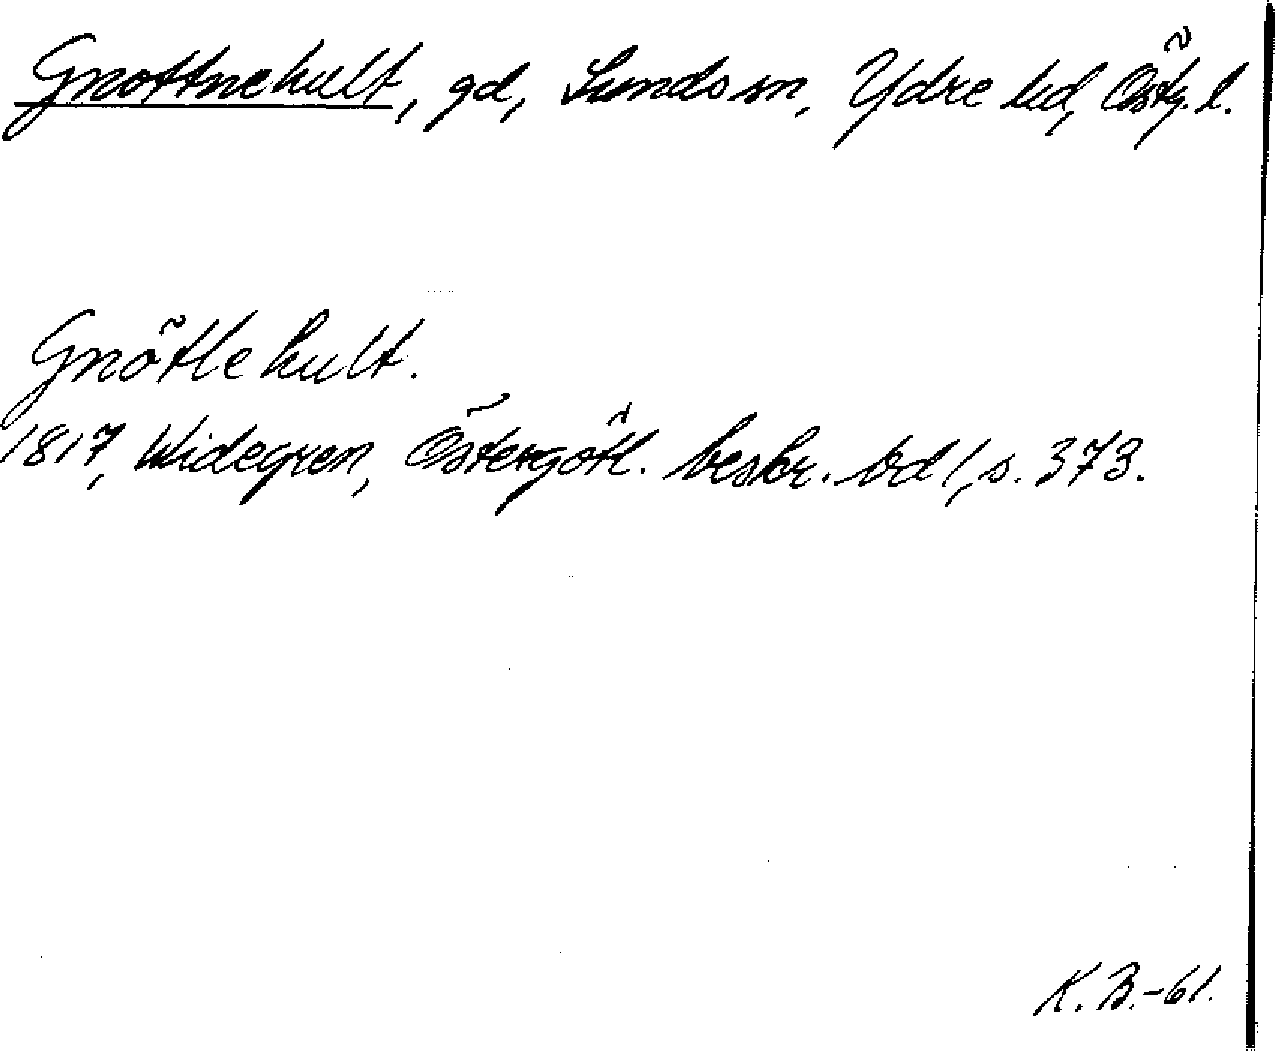 Gnottnehult, gd, Sunds sn, Ydre hd, Östg. l.
Gnötlehult.
1817, Widegren, Östergötl. beskr. bd 1, s. 373.
K. B. -61.